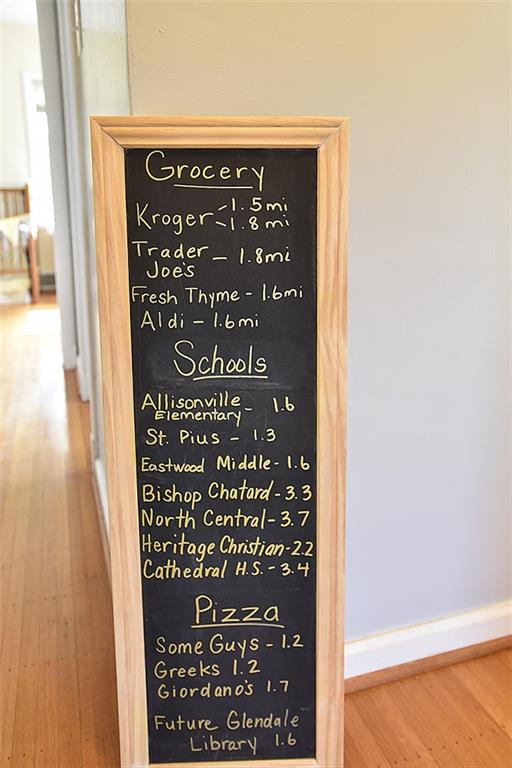 Grocery
Kroger - 1.5 mi
- 1.8 mi
Trader
Joe's - 1.8 mi
Fresh Thyme - 1.6 mi
Aldi - 1.6 mi
Schools
Allisonville
Elementary - 1.6
St. Pius - 1.3
Eastwood Middle - 1.6
Bishop Chatard - 3.3
North Central - 3.7
Heritage Christian - 2.2
Cathedral H.S. - 3.4
Pizza
Some Guys - 1.2
Greeks 1.2
Giordano's 1.7
Future Glendale
Library 1.6